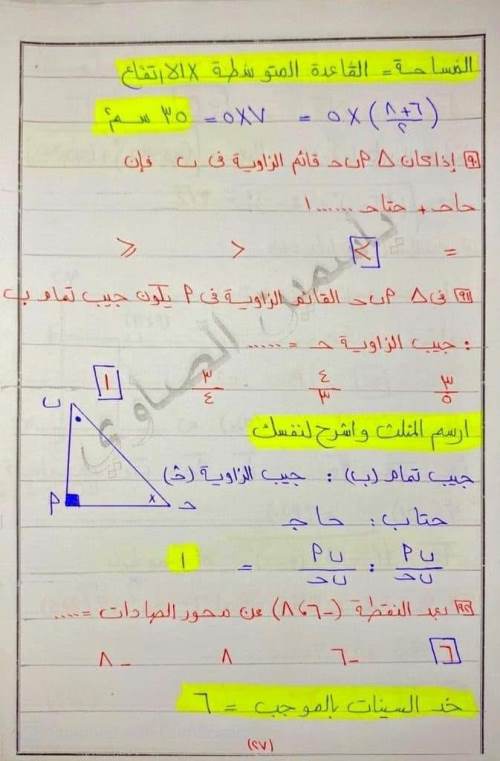 المساحة = القاعدة المتوسطة × الارتفاع
(٦+٨/٢) × ٥ = ٧×٥ = ٣٥ سم٢
٩٠ إذا كان △ ٩بحـ قائم الزاوية فى ب فإن
حاحـ + حتاحـ ...... ١
= > < ⩾
٩١ فى △ ٩بحـ القائم الزاوية فى ٩ يكون جيب تمام ب
: جيب الزاوية حـ = ......
٣/٥ ٤/٣ ٣/٤ ١
ارسم المثلث واشرح لنفسك
ب
٩
حـ
x
جيب تمام (ب) : جيب الزاوية (حـ)
حتاب : حاجـ
٩ب/بحـ : ٩ب/بحـ = ١
٩٢ بعد النقطة (-٦، ٨) عن محور الصادات = ....
٦ -٦ ٨ -٨
خد السينات بالموجب = ٦
(٢٧)
ياسمين الصاوي